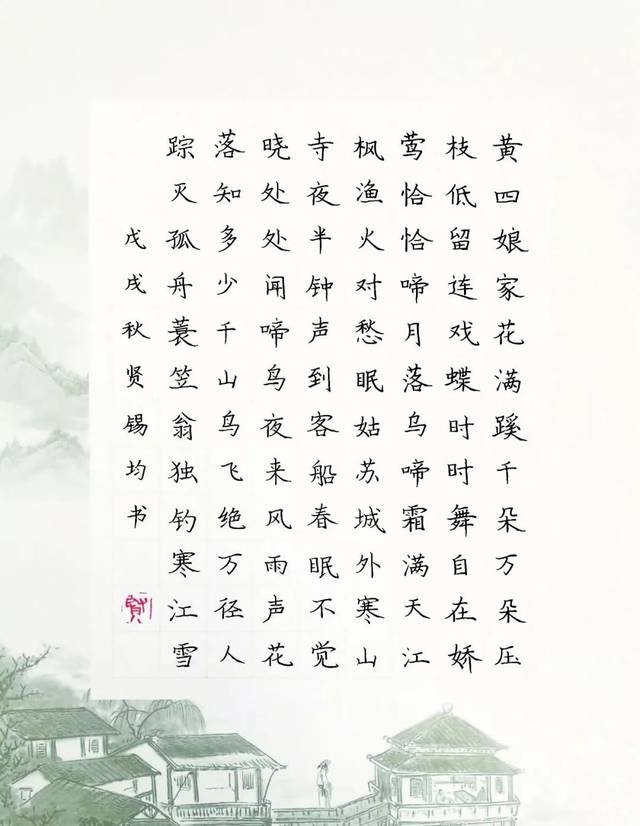 黄四娘家花满蹊千朵万朵压
枝低留连戏蝶时时舞自在娇
莺恰恰啼月落乌啼霜满天江
枫渔火对愁眠姑苏城外寒山
寺夜半钟声到客船春眠不觉
晓处处闻啼鸟夜来风雨声花
落知多少千山鸟飞绝万径人
踪灭孤舟蓑笠翁独钓寒江雪
戊戌秋贤锡均书